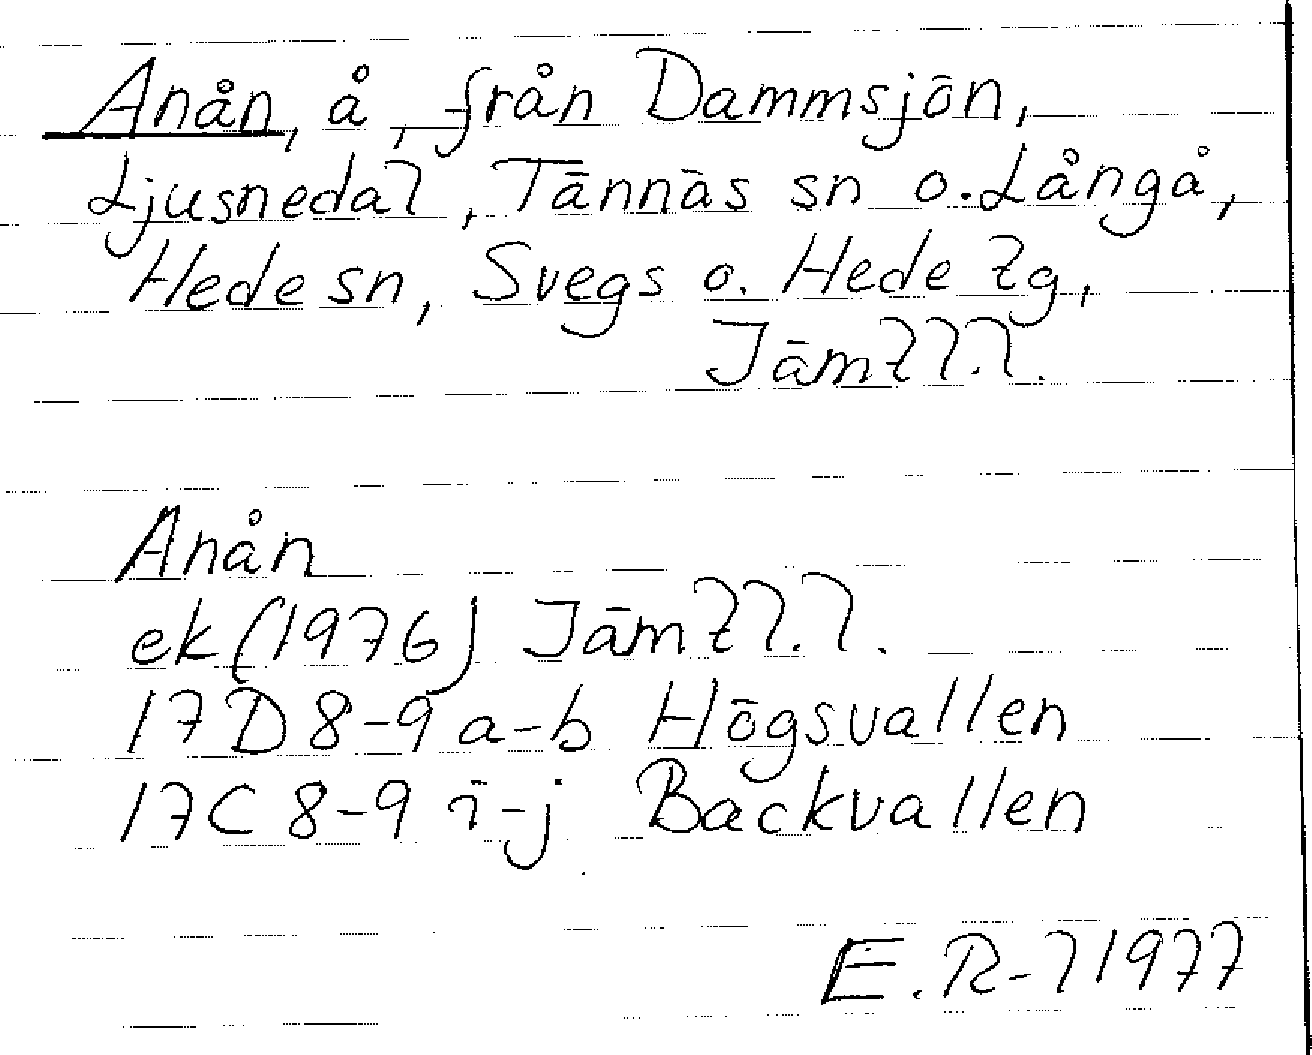 Anån, å, från Dammsjön,
Ljusnedal, Tännäs sn o. Långå,
Hede sn, Svegs o. Hede tg,
Jämtl.l.
Anån
ek (1976) Jämtl.l.
17D 8-9 a-b Högsvallen
17C 8-9 i-j Backvallen
E.R-l 1977